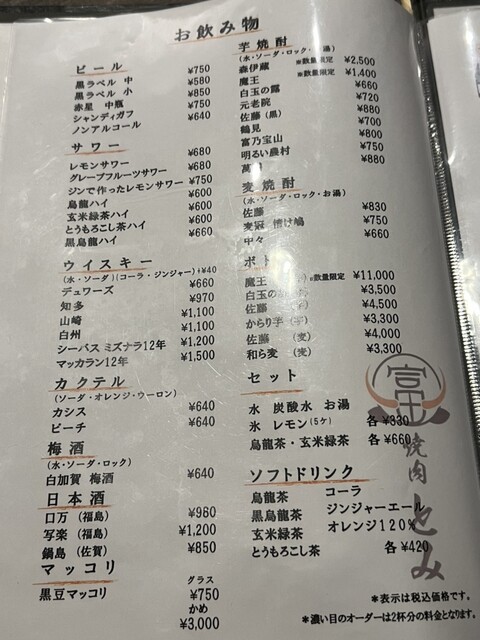 お飲み物
ビール
黒ラベル 中 ¥750
黒ラベル 小 ¥580
赤星 中瓶 ¥850
シャンディガフ ¥750
ノンアルコール ¥640
サワー
レモンサワー ¥680
グレープフルーツサワー ¥680
ジンで作ったレモンサワー ¥750
烏龍ハイ ¥600
玄米緑茶ハイ ¥600
とうもろこし茶ハイ ¥600
黒烏龍ハイ ¥680
ウイスキー
(水・ソーダ)(コーラ・ジンジャー)+¥40
デュワーズ ¥660
知多 ¥970
山崎 ¥1,100
白州 ¥1,100
シーバス ミズナラ12年 ¥1,200
マッカラン12年 ¥1,500
カクテル
(ソーダ・オレンジ・ウーロン)
カシス ¥640
ピーチ ¥640
梅酒
(水・ソーダ・ロック)
白加賀 梅酒 ¥640
日本酒
口万 (福島) ¥980
写楽 (福島) ¥1,200
鍋島 (佐賀) ¥850
マッコリ
グラス
黒豆マッコリ ¥750
かめ
¥3,000
芋焼酎
(水・ソーダ・ロック・お湯)
森伊蔵 *数量限定 ¥2,500
魔王 *数量限定 ¥1,400
白玉の露 ¥660
元老院 ¥720
佐藤 (黒) ¥880
鶴見 ¥700
富乃宝山 ¥800
明るい農村 ¥750
¥880
麦焼酎
(水・ソーダ・ロック・お湯)
佐藤 ¥830
麦冠 情け嶋 ¥750
中々 ¥660
ボト
魔王 *数量限定 ¥11,000
白玉の ¥3,500
佐藤 ¥4,500
からり芋 (芋) ¥3,300
佐藤 (麦) ¥4,000
和ら麦 (麦) ¥3,300
セット
水 炭酸水 お湯
氷 レモン(5ケ) 各 ¥330
烏龍茶・玄米緑茶 各 ¥660
ソフトドリンク
烏龍茶 コーラ
黒烏龍茶 ジンジャーエール
玄米緑茶 オレンジ120%
とうもろこし茶 各 ¥420
富
焼肉とみ
*表示は税込価格です。
*濃い目のオーダーは2杯分の料金となります。